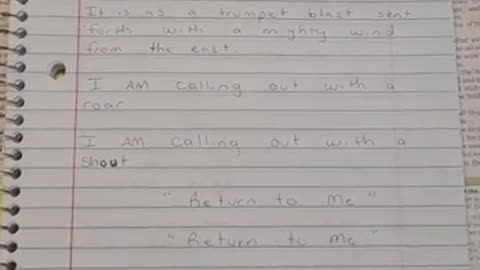 It is as a trumpet blast sent
forth with a mighty wind
from the east.
I AM calling out with a
roar
I AM calling out with a
shout
"Return to Me"
"Return to Me"